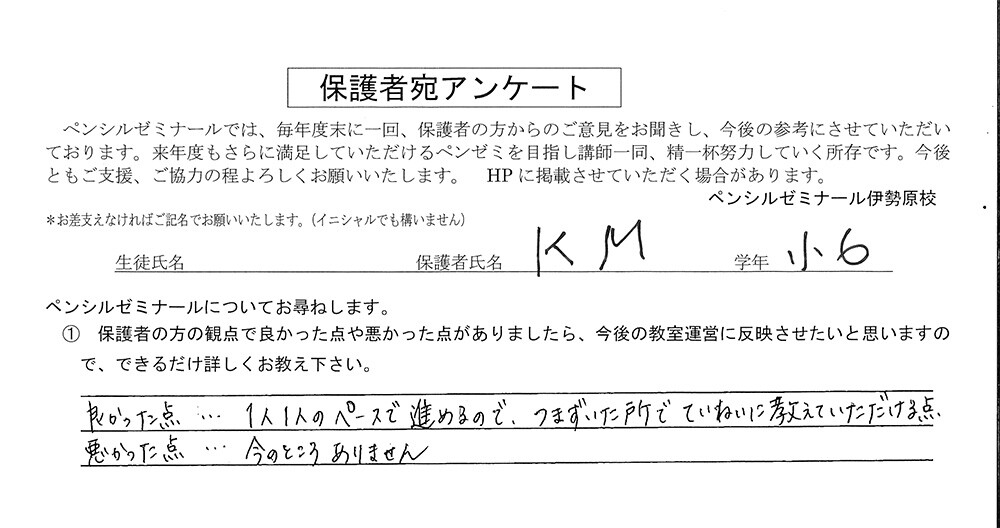 保護者宛アンケート
ペンシルゼミナールでは、毎年度末に一回、保護者の方からのご意見をお聞きし、今後の参考にさせていただい
ております。来年度もさらに満足していただけるペンゼミを目指し講師一同、精一杯努力していく所存です。今後
ともご支援、ご協力の程よろしくお願いいたします。 HPに掲載させていただく場合があります。
ペンシルゼミナール伊勢原校
*お差支えなければご記名でお願いいたします。(イニシャルでも構いません)
生徒氏名 保護者氏名 KM 学年 小6
ペンシルゼミナールについてお尋ねします。
① 保護者の方の観点で良かった点や悪かった点がありましたら、今後の教室運営に反映させたいと思いますの
で、できるだけ詳しくお教え下さい。
良かった点 … 1人1人のペースで進めるので、つまずいた所でていねいに教えていただける点、
悪かった点 … 今のところありません